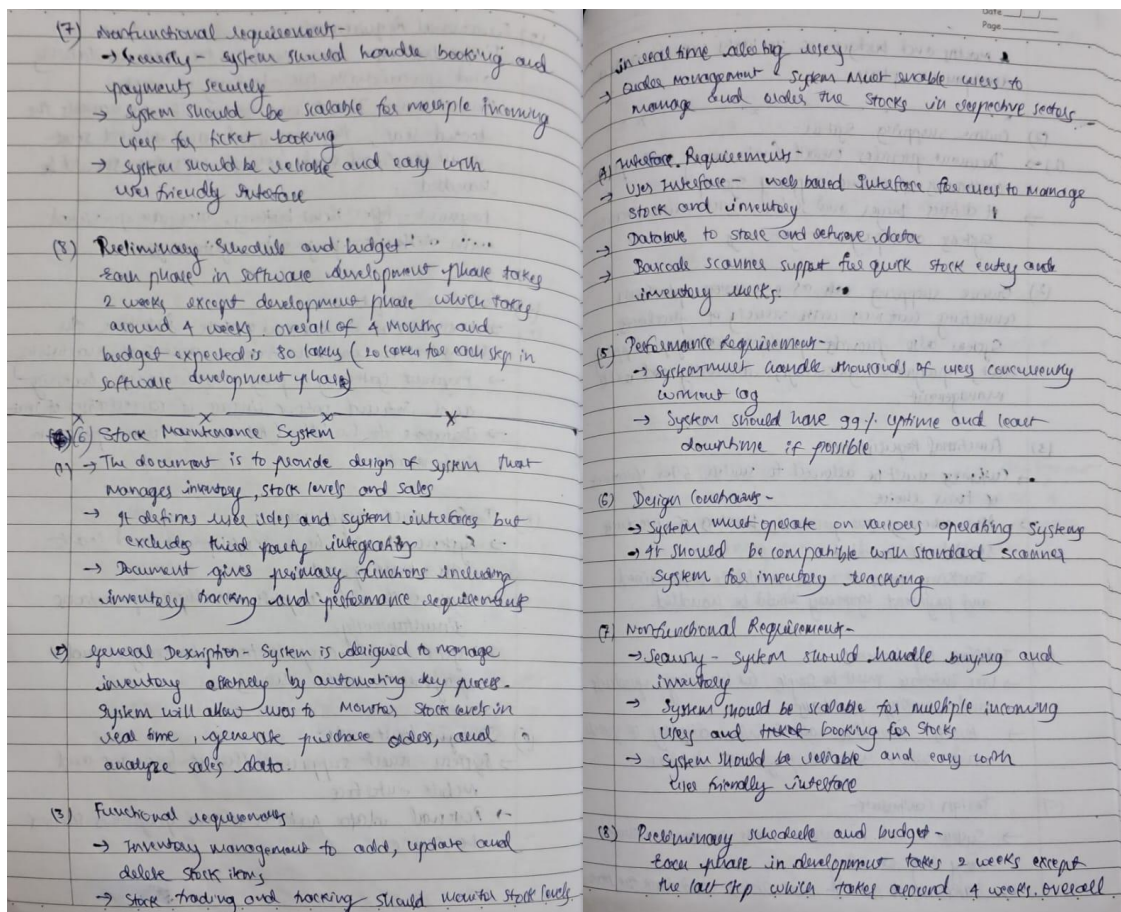 (7) Nonfunctional requirements-
→ Security - system should handle booking and
payments securely
→ System should be scalable for multiple incoming
users for ticket booking
→ System should be reliable and easy with
user friendly interface
(8) Preliminary Schedule and budget -
Each phase in software development phase takes
2 weeks except development phase which takes
around 4 weeks overall of 4 months and
budget expected is 80 lakhs (20 lakhs for each step in
software development phase)
(6) Stock Maintenance System
(1) → The document is to provide design of system that
manages inventory, stock levels and sales
→ It defines user roles and system interfaces but
excludes third party integration
→ Document gives primary functions including
inventory tracking and performance requirements
(2) General Description - System is designed to manage
inventory by automating key process.
System will allow users to monitor stock levels in
real time, generate purchase orders, and
analyze sales data.
(3) Functional requirements
→ Inventory management to add, update and
delete stock items
→ Stock trading and tracking should monitor stock levels
Date
Page
in real time alerting users
→ Order Management - System must enable users to
manage and order the stocks in respective sectors
(4) Interface Requirements -
→ User Interface - web based Interface for users to manage
stock and inventory
→ Database to store and retrieve data
→ Barcode scanner support for quick stock entry and
inventory checks.
(5) Performance Requirement -
→ System must handle thousands of users concurrently
without lag
→ System should have 99% uptime and least
downtime if possible
(6) Design Constraints -
→ System must operate on various operating systems
→ It should be compatible with standard scanner
system for inventory tracking
(7) Nonfunctional Requirement -
→ Security - System should handle buying and
inventory
→ System should be scalable for multiple incoming
users and booking for stocks
→ System should be reliable and easy with
user friendly interface
(8) Preliminary schedule and budget -
Each phase in development takes 2 weeks except
the last step which takes around 4 weeks. Overall